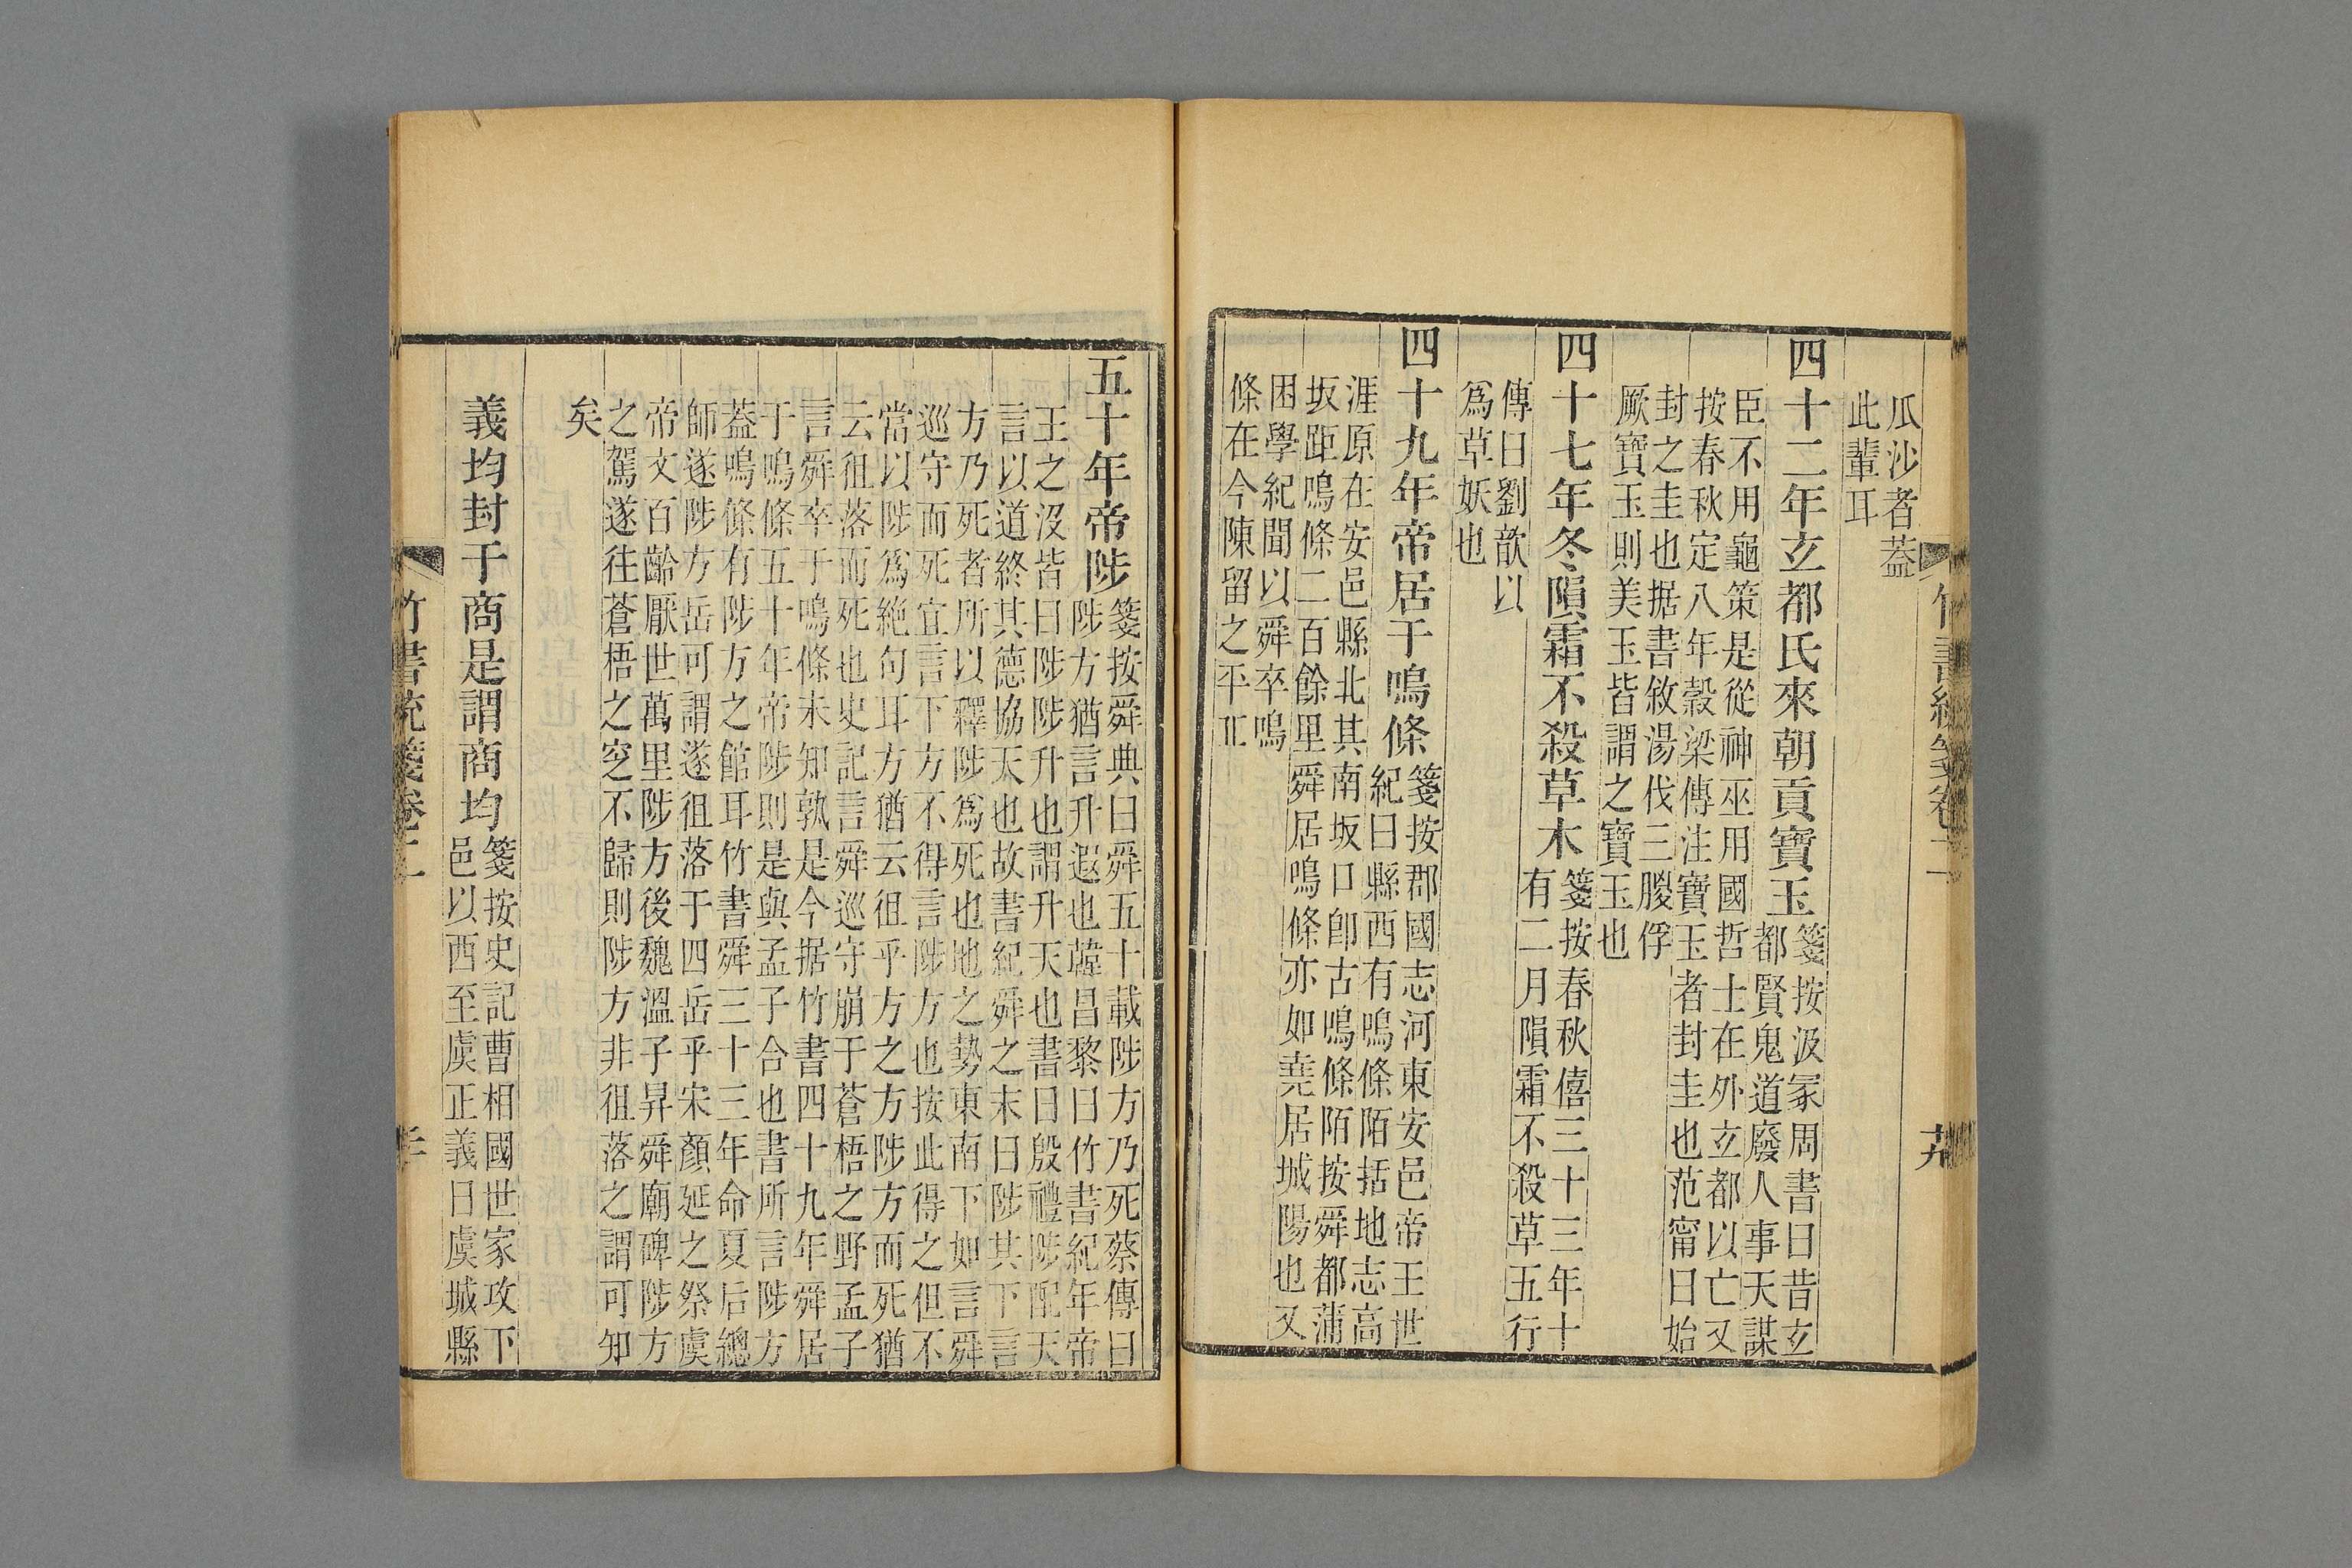 瓜沙者葢
此輩耳
四十二年玄都氏來朝貢寶玉
箋按汲冢周書曰昔玄
都賢鬼道廢人事天謀
臣不用龜策是從神巫用國哲士在外玄都以亡又
按春秋定八年穀梁傳注寶玉者封圭也范甯曰始
封之圭也据書敘湯伐三朡俘
厥寶玉則美玉皆謂之寶玉也
四十七年冬隕霜不殺草木
箋按春秋僖三十三年十
有二月隕霜不殺草五行
傳曰劉歆以
爲草妖也
四十九年帝居于鳴條
箋按郡國志河東安邑帝王世
紀曰縣西有鳴條陌括地志高
涯原在安邑縣北其南坂口卽古鳴條陌按舜都蒲
坂距鳴條二百餘里舜居鳴條亦如堯居城陽也又
困學紀聞以舜卒鳴
條在今陳留之平丘
竹書統箋卷二
五十年帝陟
箋按舜典曰舜五十載陟方乃死蔡傳曰
陟方猶言升遐也韓昌黎曰竹書紀年帝
王之沒皆曰陟陟升也謂升天也書曰殷禮陟配天
言以道終其德協天也故書紀舜之末曰陟其下言
方乃死者所以釋陟爲死也地之勢東南下如言舜
巡守而死宜言下方不得言陟方也按此得之但不
當以陟爲絶句耳方猶云徂乎方之方陟方而死猶
云徂落而死也史記言舜巡守崩于蒼梧之野孟子
言舜卒于鳴條未知孰是今据竹書四十九年舜居
于鳴條五十年帝陟則是與孟子合也書所言陟方
葢鳴條有陟方之館耳竹書舜三十三年命夏后總
師遂陟方岳可謂遂徂落于四岳乎宋顏延之祭虞
帝文百齡厭世萬里陟方後魏溫子昇舜廟碑陟方
之駕遂往蒼梧之窆不歸則陟方非徂落之謂可知
矣
義均封于商是謂商均
箋按史記曹相國世家攻下
邑以西至虞正義曰虞城縣
竹書統箋卷二